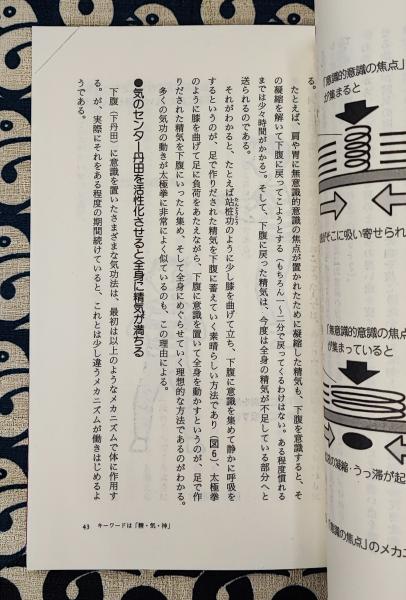 る。
たとえば、肩や胃に無意識的意識の焦点が置かれたために凝縮した精気も、下腹を意識すると、そ
の凝縮を解いて下腹に戻ってこようとする（もちろん一〜二分で戻ってくるわけはない。ある程度慣れる
までは少々時間がかかる）。そして、下腹に戻った精気は、今度は全身の精気が不足している部分へと
送られるのである。
それがわかると、たとえば站桩功のように少し膝を曲げて立ち、下腹に意識を集めて静かに呼吸を
するというのが、足で作りだされた精気を下腹に蓄えていく素晴らしい方法であり（図6）、太極拳
のように膝を曲げて足に負荷をあたえながら、下腹に意識を置いて全身を動かすというのが、足で作
りだされた精気を下腹にいったん集め、そして全身にめぐらせていく理想的な方法であるのがわかる。
多くの気功の動きが太極拳に非常によく似ているのも、この理由による。
●気のセンター丹田を活性化させると全身に精気が満ちる
下腹（下丹田）に意識を置いたさまざまな気功法は、最初は以上のようなメカニズムで体に作用す
る。が、実際にそれをある程度の期間続けていると、これとは少し違うメカニズムが働きはじめるよ
うである。
43 キーワードは「精・気・神」
「意識的意識の焦点」
が集まると
がそこに吸い寄せられ
「無意識的意識の焦点」
が集まっていると
の凝縮・うっ滞が起
「意識の焦点」のメカニ